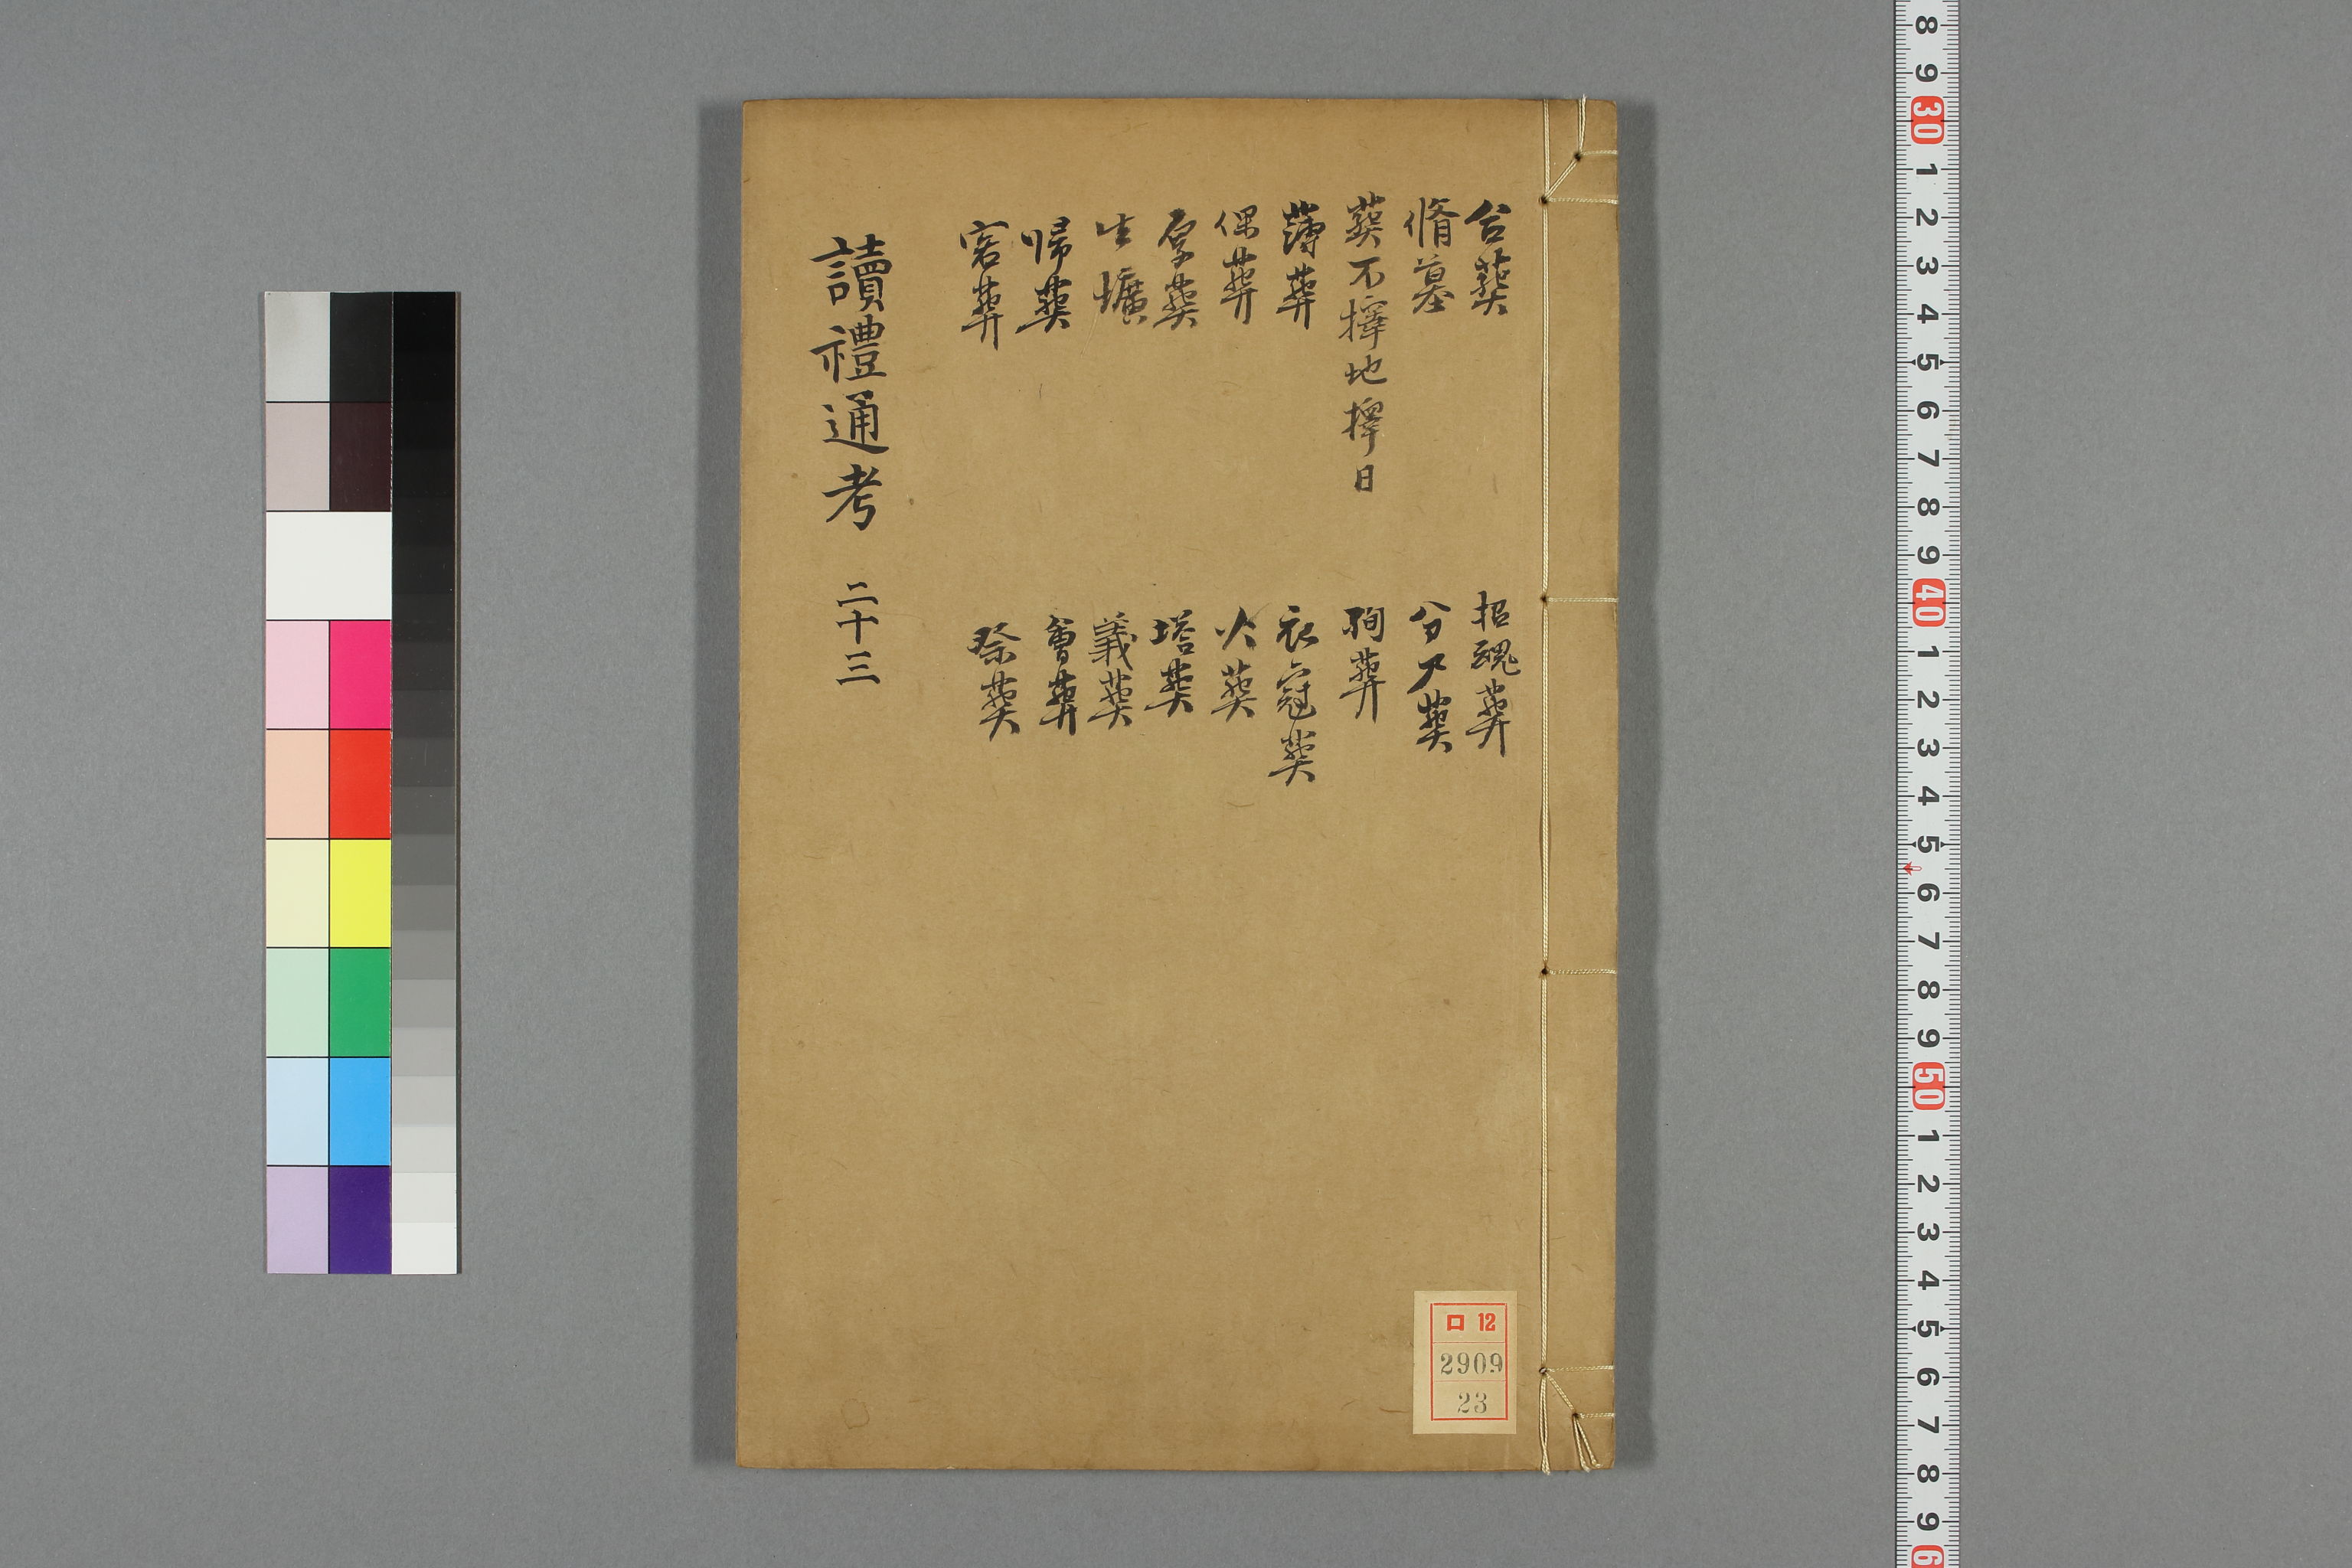 合葬
脩墓
葬不擇地擇日
薄葬
偶葬
厚葬
生壙
帰葬
客葬
招魂葬
分尸葬
殉葬
衣冠葬
火葬
塔葬
義葬
會葬
祭葬
讀禮通考 二十三
ロ 12
2909
23
8 9 30 1 2 3 4 5 6 7 8 9 40 1 2 3 4 5 6 7 8 9 50 1 2 3 4 5 6 7 8 9 6